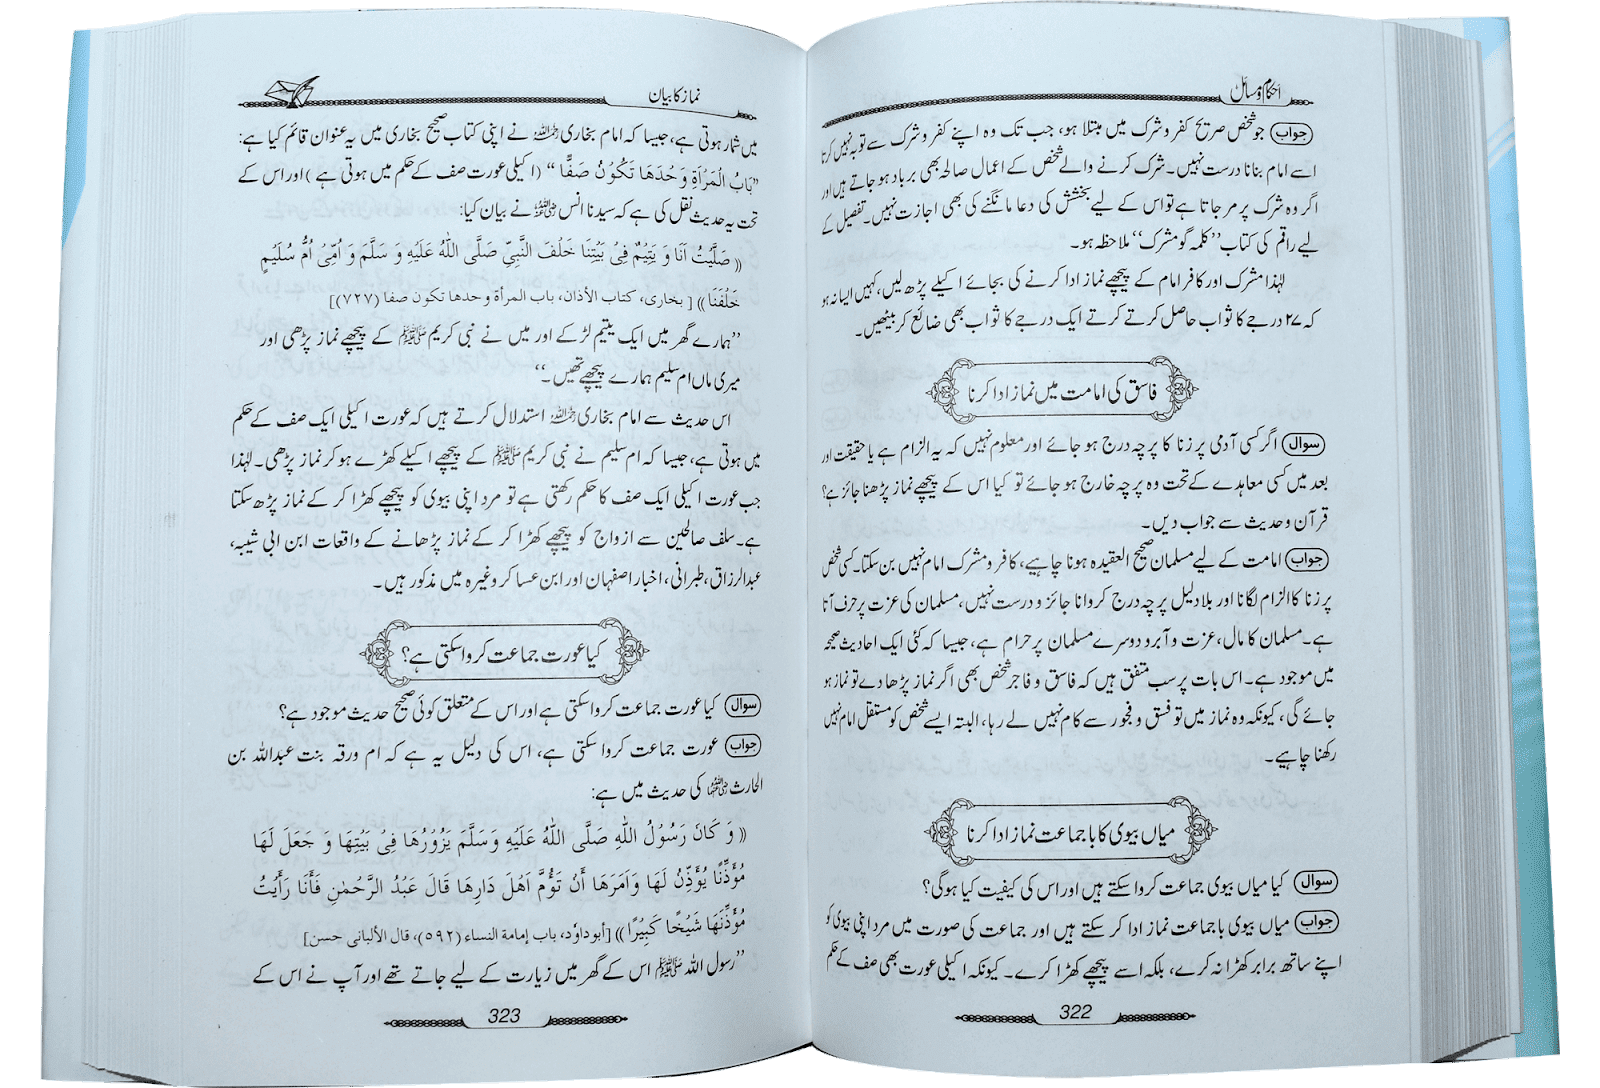 احکام و مسائل
جواب جو شخص صریح کفر و شرک میں مبتلا ہو، جب تک وہ اپنے کفر و شرک سے توبہ نہیں کرتا
اسے امام بنانا درست نہیں۔ شرک کرنے والے شخص کے اعمال صالحہ بھی برباد ہو جاتے ہیں اور
اگر وہ شرک پر مر جاتا ہے تو اس کے لیے بخشش کی دعا مانگنے کی بھی اجازت نہیں۔ تفصیل کے
لیے راقم کی کتاب ’’کلمہ گو مشرک‘‘ ملاحظہ ہو۔
لہٰذا مشرک اور کافر امام کے پیچھے نماز ادا کرنے کی بجائے اکیلے پڑھ لیں، کہیں ایسا نہ ہو
کہ ۲۷ درجے کا ثواب حاصل کرتے کرتے ایک درجے کا ثواب بھی ضائع کر بیٹھیں۔
فاسق کی امامت میں نماز ادا کرنا
سوال اگر کسی آدمی پر زنا کا پرچہ درج ہو جائے اور معلوم نہیں کہ یہ الزام ہے یا حقیقت اور
بعد میں کسی معاہدے کے تحت وہ پرچہ خارج ہو جائے تو کیا اس کے پیچھے نماز پڑھنا جائز ہے؟
قرآن و حدیث سے جواب دیں۔
جواب امامت کے لیے مسلمان صحیح العقیدہ ہونا چاہیے، کافر و مشرک امام نہیں بن سکتا۔ کسی شخص
پر زنا کا الزام لگانا اور بلا دلیل پرچہ درج کروانا جائز و درست نہیں، مسلمان کی عزت پر حرف آتا
ہے۔ مسلمان کا مال، عزت و آبرو دوسرے مسلمان پر حرام ہے، جیسا کہ کئی ایک احادیث صحیحہ
میں موجود ہے۔ اس بات پر سب متفق ہیں کہ فاسق و فاجر شخص بھی اگر نماز پڑھا دے تو نماز ہو
جائے گی، کیونکہ وہ نماز میں تو فسق و فجور سے کام نہیں لے رہا، البتہ ایسے شخص کو مستقل امام نہیں
رکھنا چاہیے۔
میاں بیوی کا باجماعت نماز ادا کرنا
سوال کیا میاں بیوی جماعت کروا سکتے ہیں اور اس کی کیفیت کیا ہوگی؟
جواب میاں بیوی باجماعت نماز ادا کر سکتے ہیں اور جماعت کی صورت میں مرد اپنی بیوی کو
اپنے ساتھ برابر کھڑا نہ کرے، بلکہ اسے پیچھے کھڑا کرے۔ کیونکہ اکیلی عورت بھی صف کے حکم
322
نماز کا بیان
میں شمار ہوتی ہے، جیسا کہ امام بخاری رحمہ اللہ نے اپنی کتاب صحیح بخاری میں یہ عنوان قائم کیا ہے:
’’بَابُ الْمَرْأَةِ وَحْدَهَا تَكُوْنُ صَفًّا‘‘ (اکیلی عورت صف کے حکم میں ہوتی ہے) اور اس کے
تحت یہ حدیث نقل کی ہے کہ سیدنا انس رضی اللہ عنہ نے بیان کیا:
(( صَلَّيْتُ اَنَا وَ يَتِيْمٌ فِيْ بَيْتِنَا خَلْفَ النَّبِيِّ صَلَّى اللّٰهُ عَلَيْهِ وَ سَلَّمَ وَ اُمِّيْ اُمُّ سُلَيْمٍ
خَلْفَنَا )) [ بخاری، کتاب الأذان، باب المرأة وحدها تكون صفا (۷۲۷) ]
’’ہمارے گھر میں ایک یتیم لڑکے اور میں نے نبی کریم ﷺ کے پیچھے نماز پڑھی اور
میری ماں ام سلیم ہمارے پیچھے تھیں۔‘‘
اس حدیث سے امام بخاری رحمہ اللہ استدلال کرتے ہیں کہ عورت اکیلی ایک صف کے حکم
میں ہوتی ہے، جیسا کہ ام سلیم نے نبی کریم ﷺ کے پیچھے اکیلے کھڑے ہو کر نماز پڑھی۔ لہٰذا
جب عورت اکیلی ایک صف کا حکم رکھتی ہے تو مرد اپنی بیوی کو پیچھے کھڑا کر کے نماز پڑھ سکتا
ہے۔ سلف صالحین سے ازواج کو پیچھے کھڑا کر کے نماز پڑھانے کے واقعات ابن ابی شیبہ،
عبدالرزاق، طبرانی، اخبار اصفہان اور ابن عساکر وغیرہ میں مذکور ہیں۔
کیا عورت جماعت کروا سکتی ہے؟
سوال کیا عورت جماعت کروا سکتی ہے اور اس کے متعلق کوئی صحیح حدیث موجود ہے؟
جواب عورت جماعت کروا سکتی ہے، اس کی دلیل یہ ہے کہ ام ورقہ بنت عبداللہ بن
الحارث رضی اللہ عنہا کی حدیث میں ہے:
(( وَ كَانَ رَسُوْلُ اللّٰهِ صَلَّى اللّٰهُ عَلَيْهِ وَسَلَّمَ يَزُوْرُهَا فِيْ بَيْتِهَا وَ جَعَلَ لَهَا
مُؤَذِّنًا يُؤَذِّنُ لَهَا وَاَمَرَهَا أَنْ تَؤُمَّ اَهْلَ دَارِهَا قَالَ عَبْدُ الرَّحْمٰنِ فَأَنَا رَأَيْتُ
مُؤَذِّنَهَا شَيْخًا كَبِيْرًا )) [أبو داؤد، باب إمامة النساء (۵۹۲)، قال الألبانی حسن]
’’رسول اللہ ﷺ اس کے گھر میں زیارت کے لیے جاتے تھے اور آپ نے اس کے
323